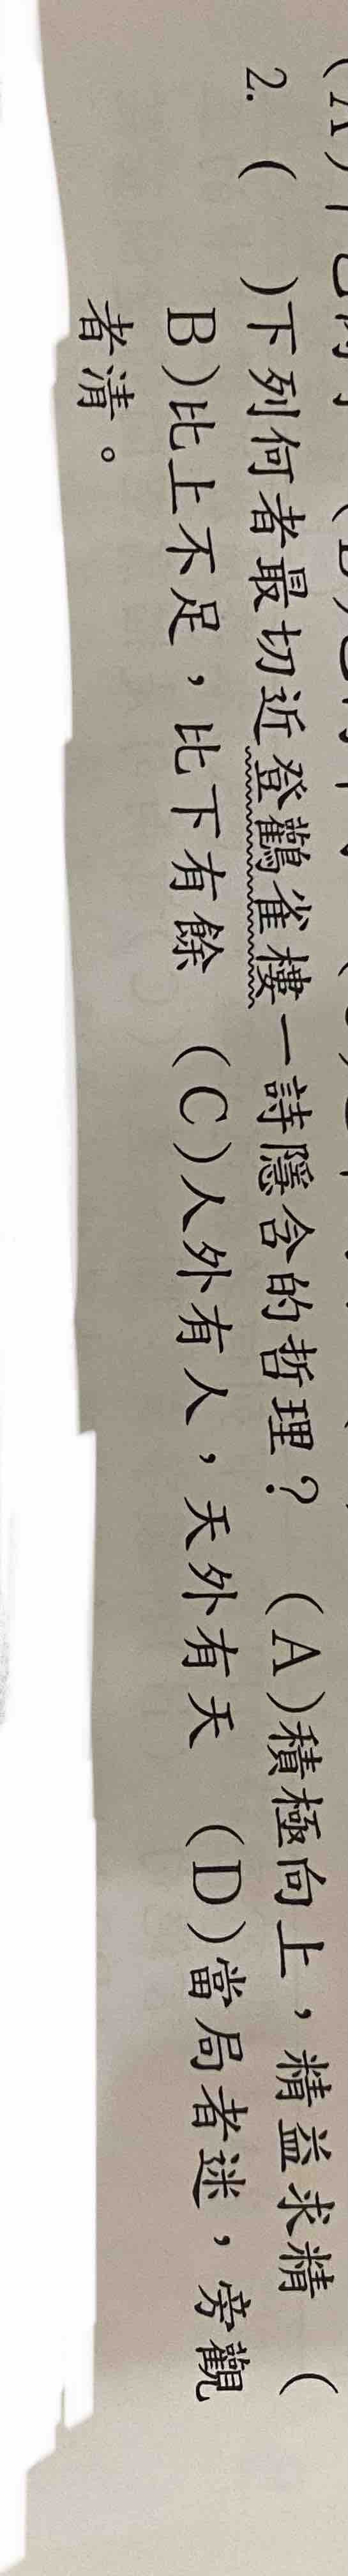 2. (　)下列何者最切近登鸛雀樓一詩隱含的哲理？ (A)積極向上，精益求精 (
B)比上不足，比下有餘 (C)人外有人，天外有天 (D)當局者迷，旁觀
者清。